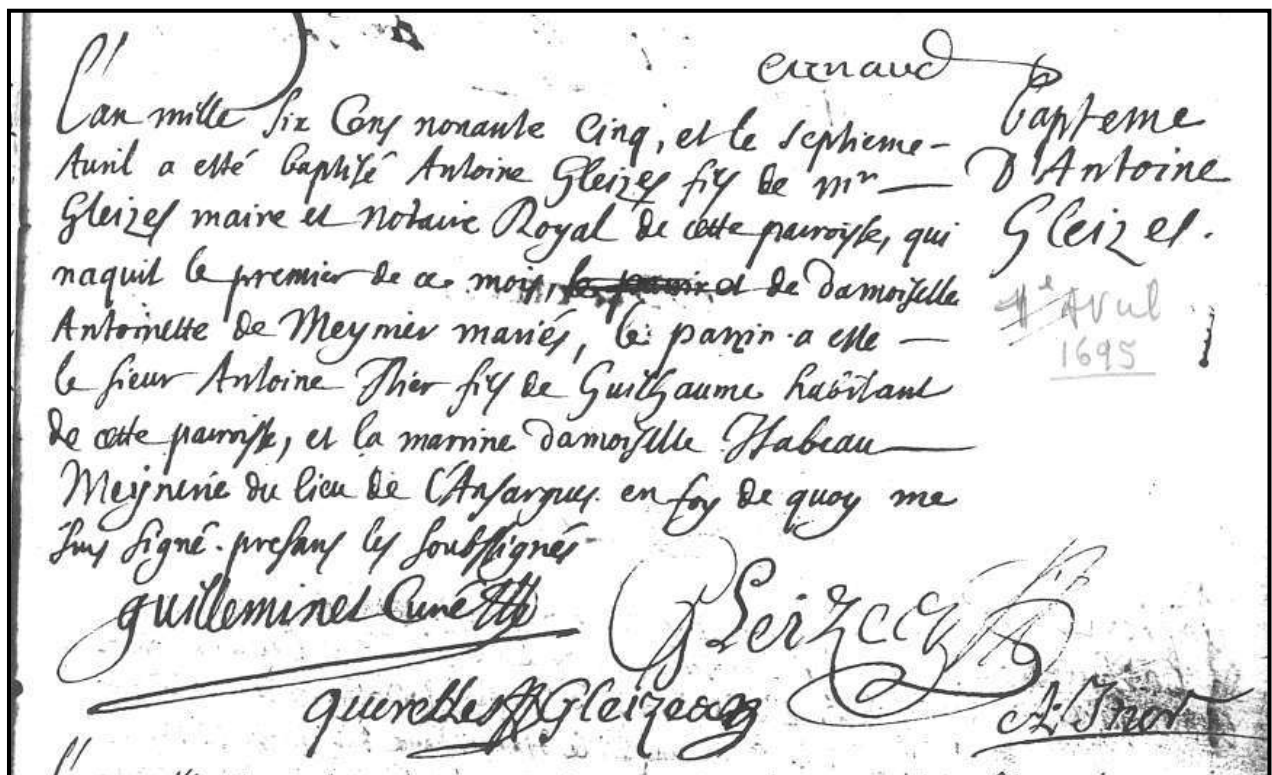 Arnaud
L'an mille six Cens nonante Cinq, et le septieme
Avril a esté baptisé Antoine Gleizes fils de mr
Gleizes maire et notaire Royal de cette parroisse, qui
naquit le premier de ce mois, et de damoiselle
Antoinette de Meynier mariés, le parrin a esté
le sieur Antoine fils de Guilhaume habitant
de cette parroisse, et la marrine damoiselle Isabeau
Meynerie du lieu de L'Ansargues en foy de quoy me
suis signé presans les soubsignés
guilleminet Curé
Gleizes
querelles Gleizes
Bapteme
D'Antoine
Gleizes.
Avril
1695